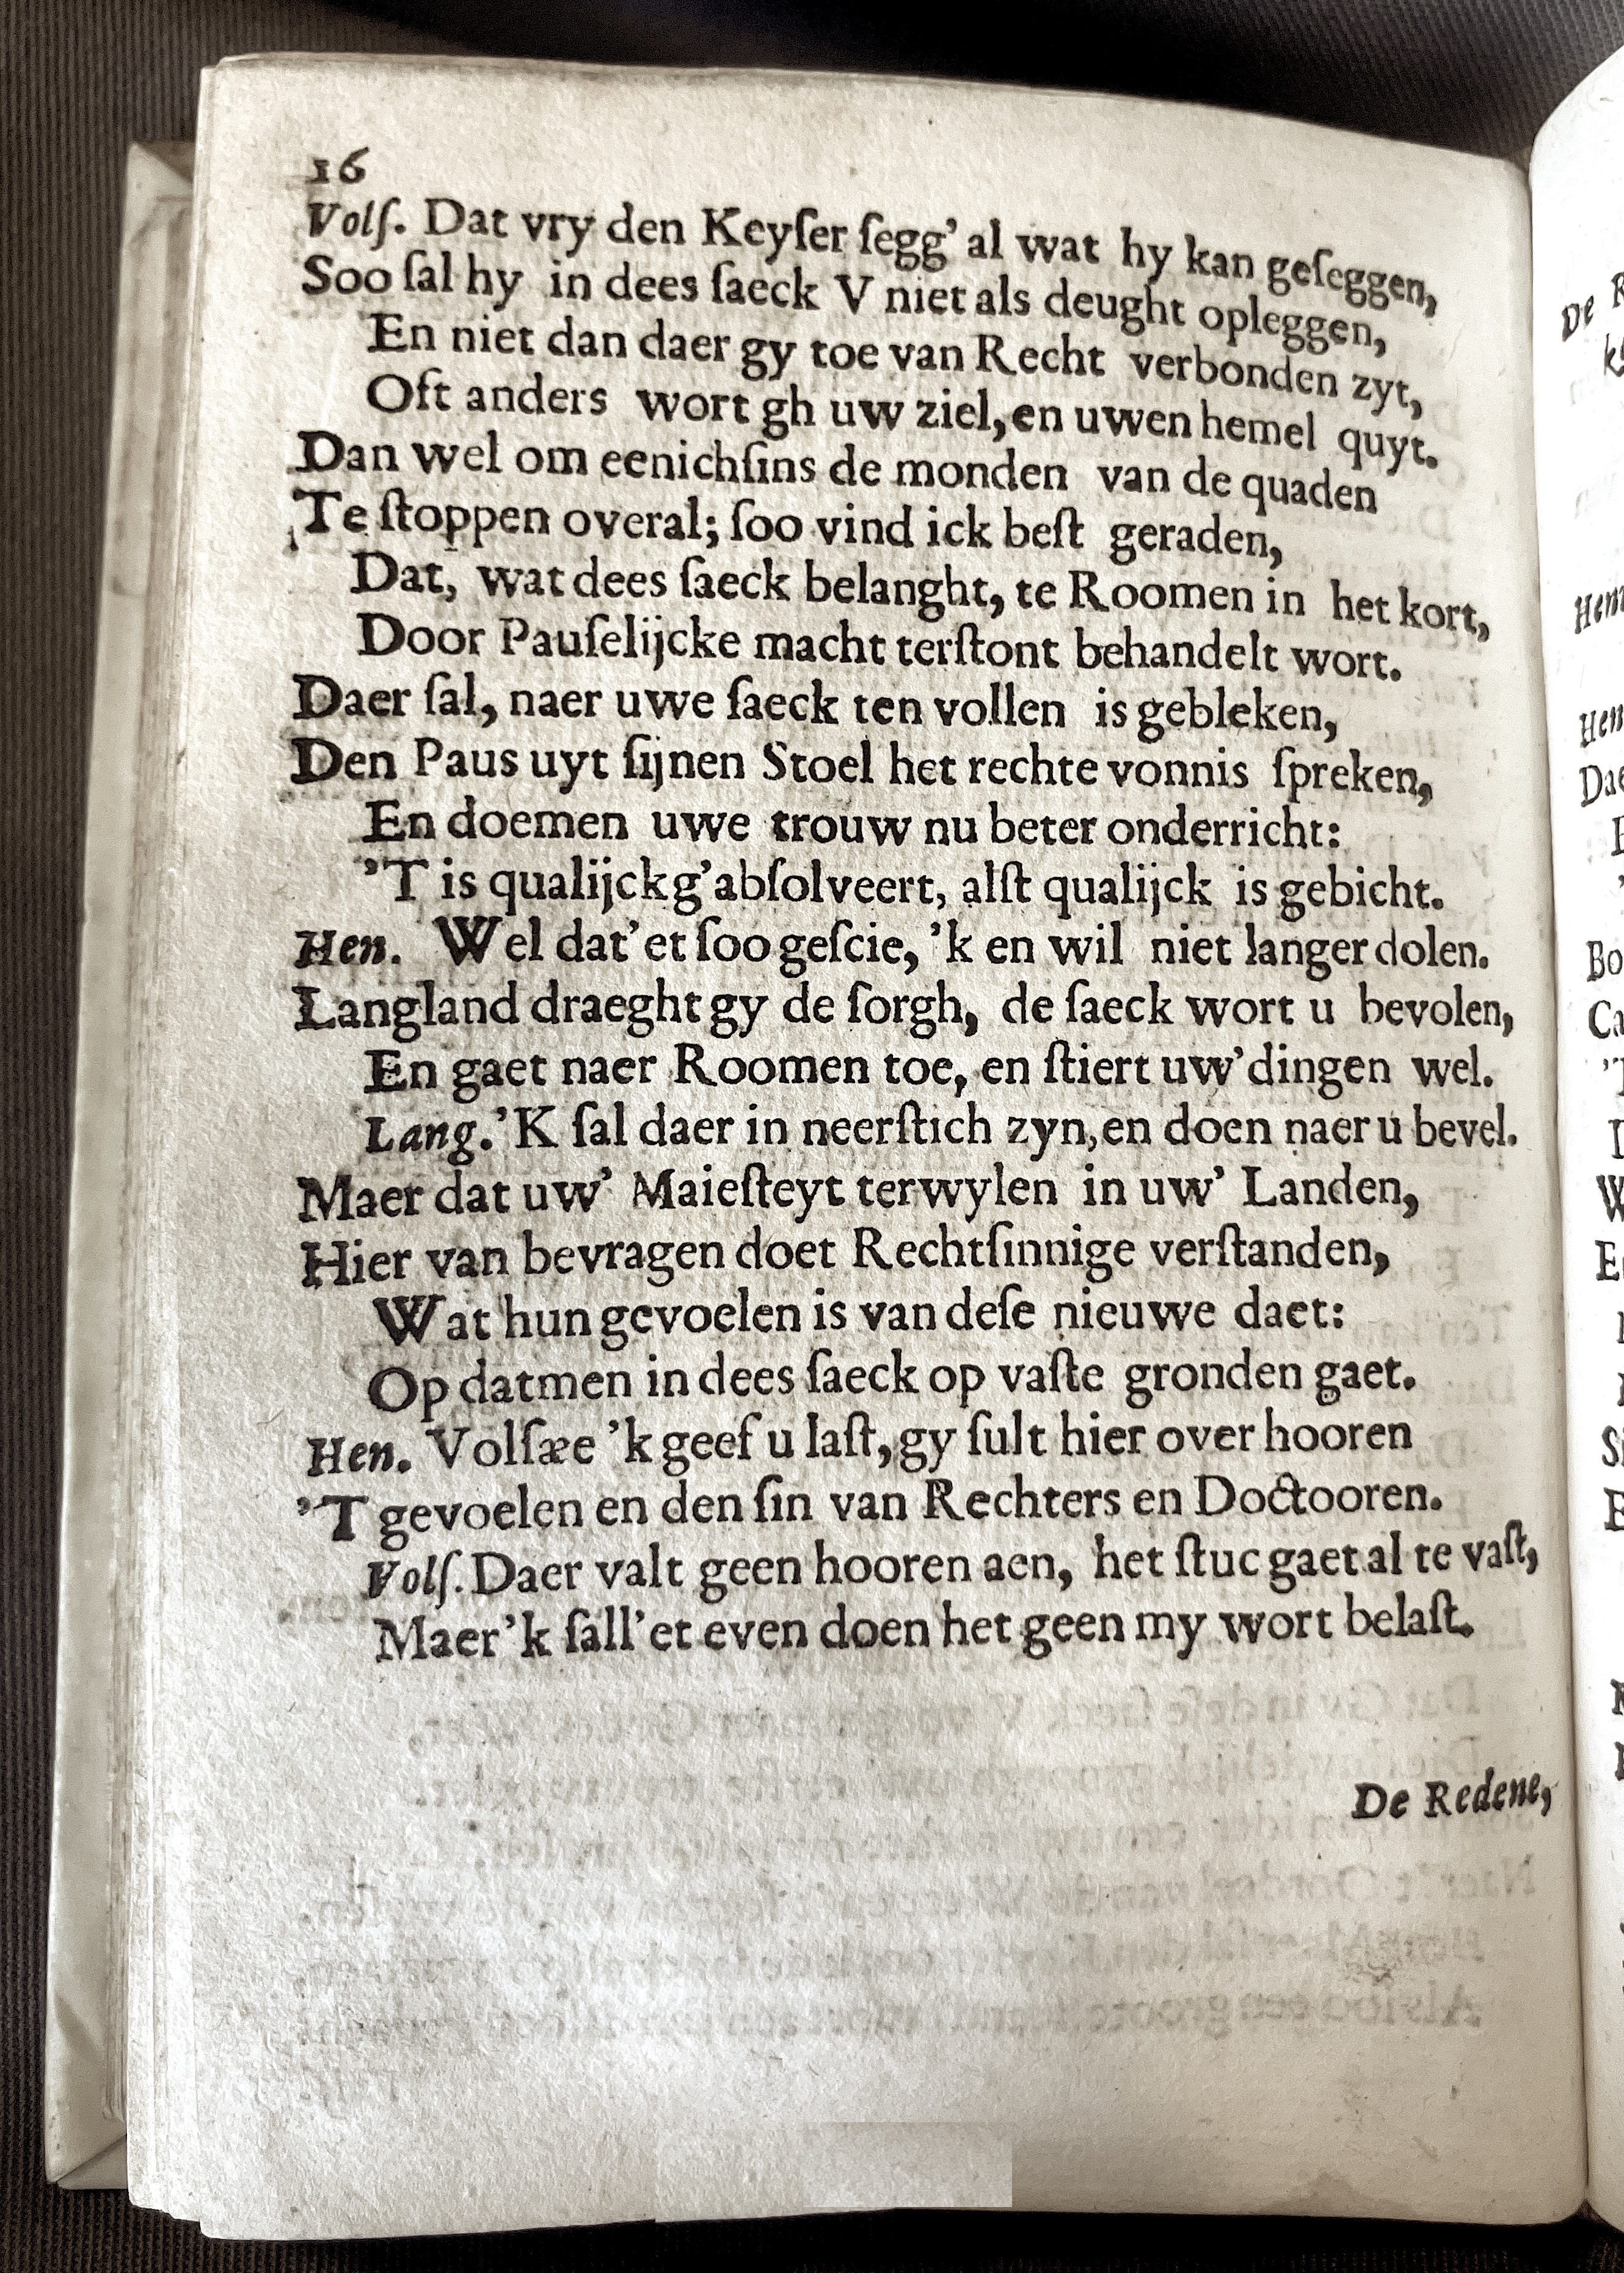 16
Volſ. Dat vry den Keyſer ſegg' al wat hy kan geſeggen,
Soo ſal hy in dees ſaeck V niet als deught opleggen,
En niet dan daer gy toe van Recht verbonden zyt,
Oft anders wort gh uw ziel, en uwen hemel quyt.
Dan wel om eenichſins de monden van de quaden
Te ſtoppen overal; ſoo vind ick beſt geraden,
Dat, wat dees ſaeck belanght, te Roomen in het kort,
Door Pauſelijcke macht terſtont behandelt wort.
Daer ſal, naer uwe ſaeck ten vollen is gebleken,
Den Paus uyt ſijnen Stoel het rechte vonnis ſpreken,
En doemen uwe trouw nu beter onderricht:
'T is qualijck g'abſolveert, alſt qualijck is gebicht.
Hen. Wel dat' et ſoo geſcie, 'k en wil niet langer dolen.
Langland draeght gy de ſorgh, de ſaeck wort u bevolen,
En gaet naer Roomen toe, en ſtiert uw' dingen wel.
Lang. 'K ſal daer in neerſtich zyn, en doen naer u bevel.
Maer dat uw' Maieſteyt terwylen in uw' Landen,
Hier van bevragen doet Rechtſinnige verſtanden,
Wat hun gevoelen is van deſe nieuwe daet:
Op datmen in dees ſaeck op vaſte gronden gaet.
Hen. Volſæe 'k geef u laſt, gy ſult hier over hooren
'T gevoelen en den ſin van Rechters en Doctooren.
Volſ. Daer valt geen hooren aen, het ſtuc gaet al te vaſt,
Maer 'k ſall' et even doen het geen my wort belaſt.
De Redene,